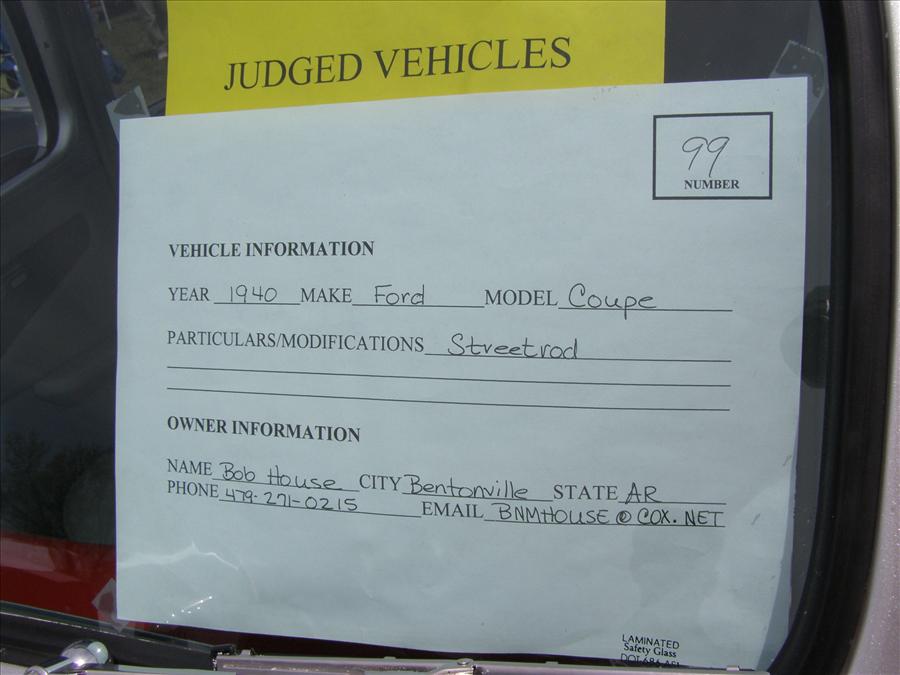 JUDGED VEHICLES
99
NUMBER
VEHICLE INFORMATION
YEAR 1940 MAKE Ford MODEL Coupe
PARTICULARS/MODIFICATIONS Streetrod
OWNER INFORMATION
NAME Bob House CITY Bentonville STATE AR
PHONE 479-271-0215 EMAIL BNMHOUSE@COX.NET
LAMINATED
Safety Glass